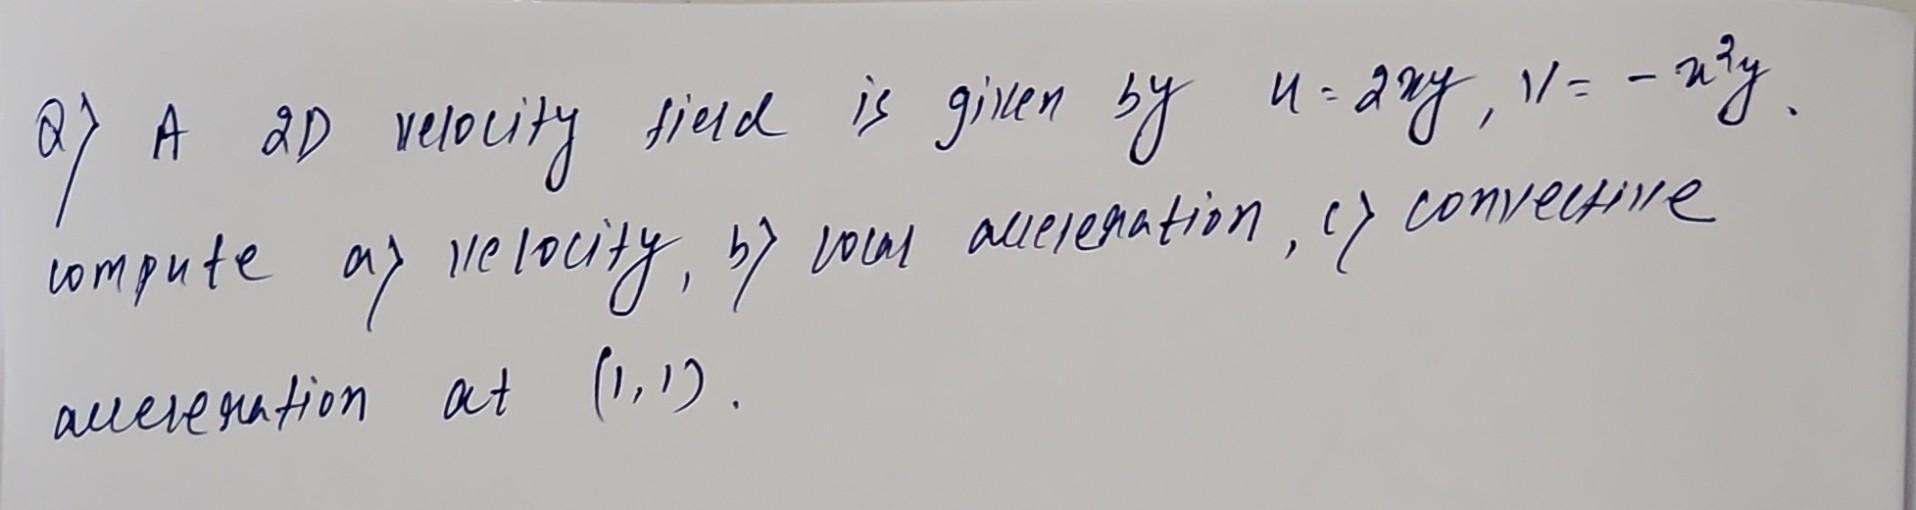 Q) A 2D velocity field is given by u = 2xy, v = - x²y.
compute a) velocity, b) local acceleration, c) convective
acceleration at (1,1).